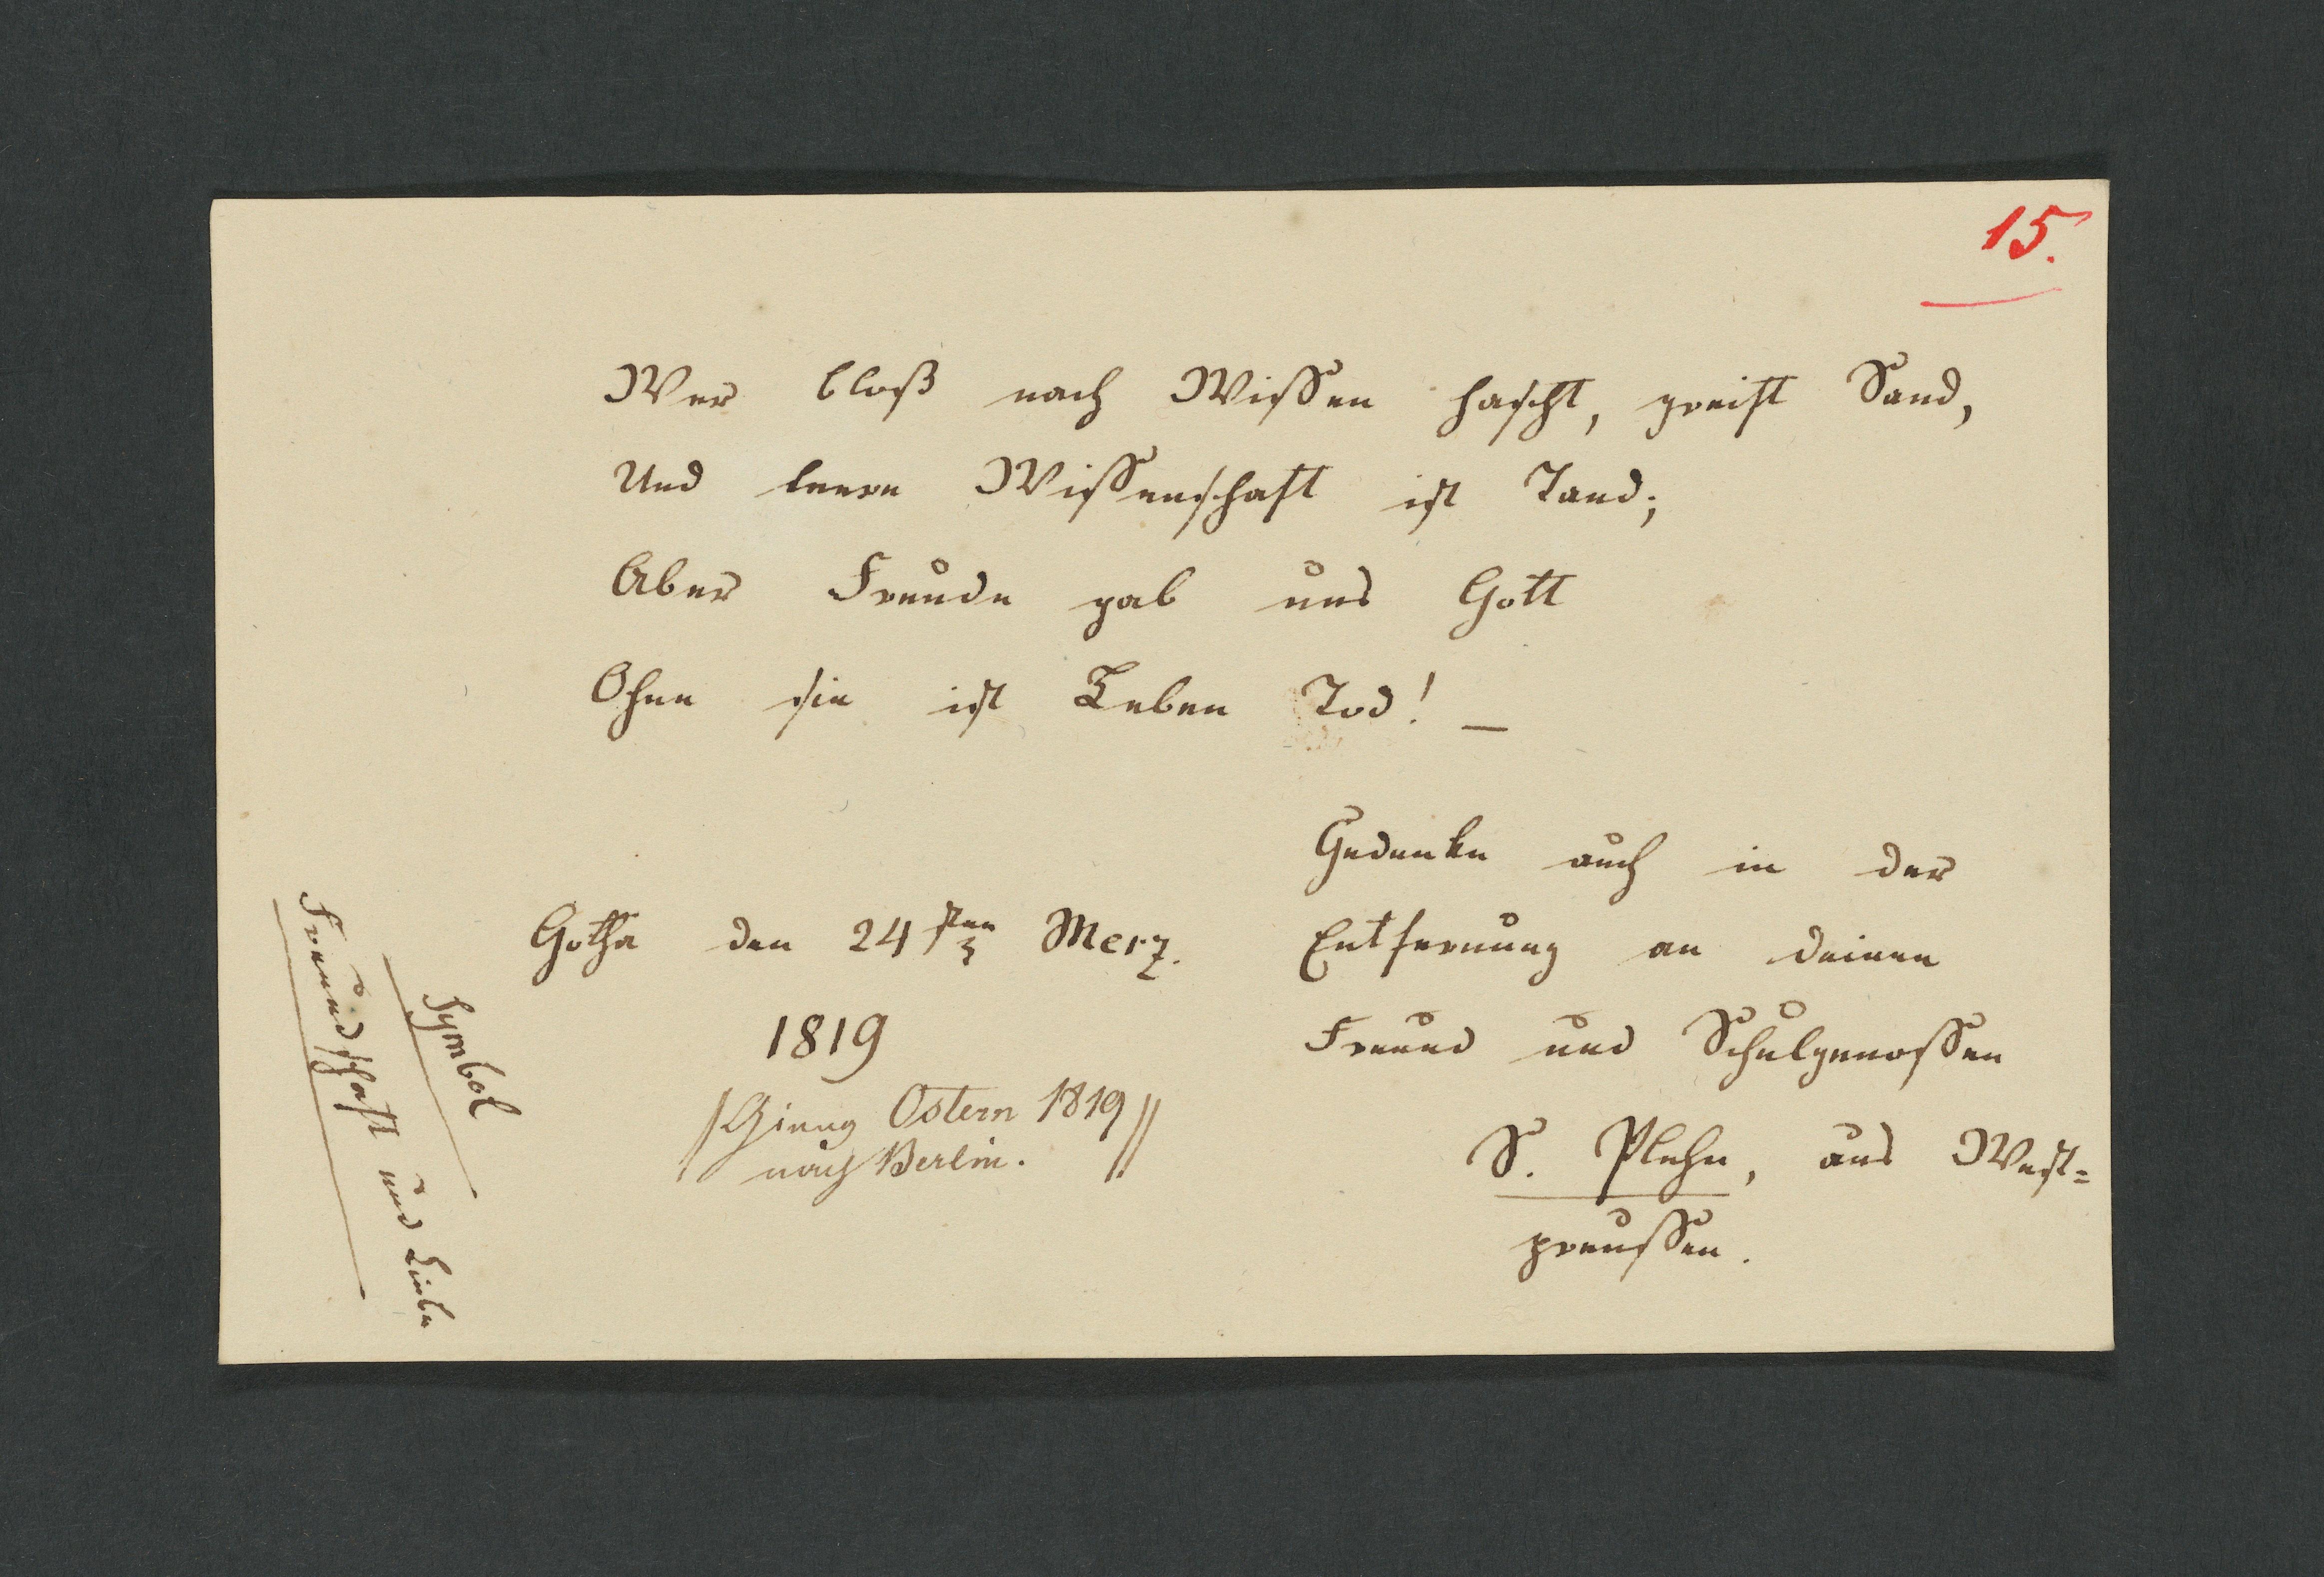 15.
Wer bloß nach Wissen hascht, greift Sand,
Und leere Wissenschaft ist Tand;
Aber Freude gab uns Gott
Ohne sie ist Leben Tod! –
Gedenke auch in der
Entfernung an deinen
Freund und Schulgenossen
S. Plehn, aus West=
preussen.
Gotha den 24sten Merz.
1819
/Gieng Ostern 1819//
nach Berlin.
Symbol
Freundschaft und Liebe